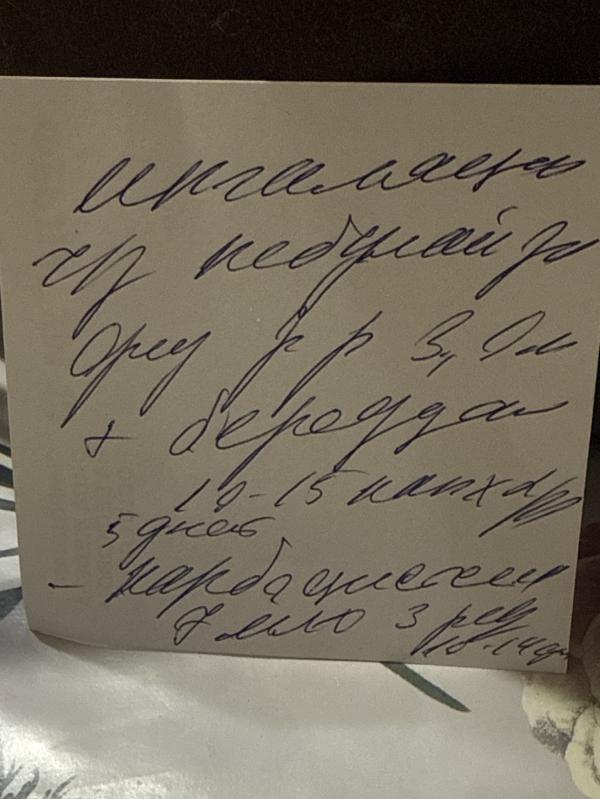 ингаляции
чз небулайзер
физ р р 3,0 мл
+ беродуал
10-15 кап x 2 р
5 дней
- карбоцистеин
7 мл 3 р
10-14 дн